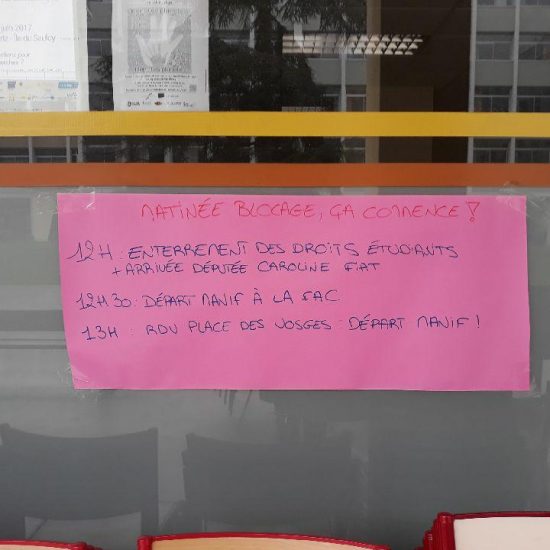 juin 2017
Île du Saulcy
MATINÉE BLOCAGE, ÇA COMMENCE !
12H : ENTERREMENT DES DROITS ÉTUDIANTS
+ ARRIVÉE DÉPUTÉE CAROLINE FIAT
12H30 : DÉPART MANIF À LA FAC
13H : RDV PLACE DES VOSGES : DÉPART MANIF !